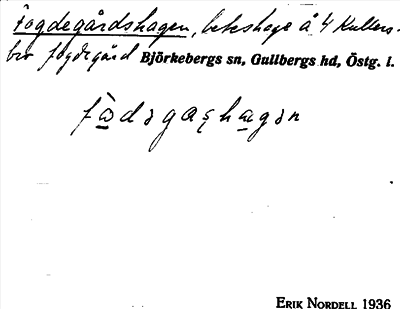 Fogdegårdshagen, beteshage å 4 Kullers-
bro fogdegård Björkebergs sn, Gullbergs hd, Östg. l.
ERIK NORDELL 1936